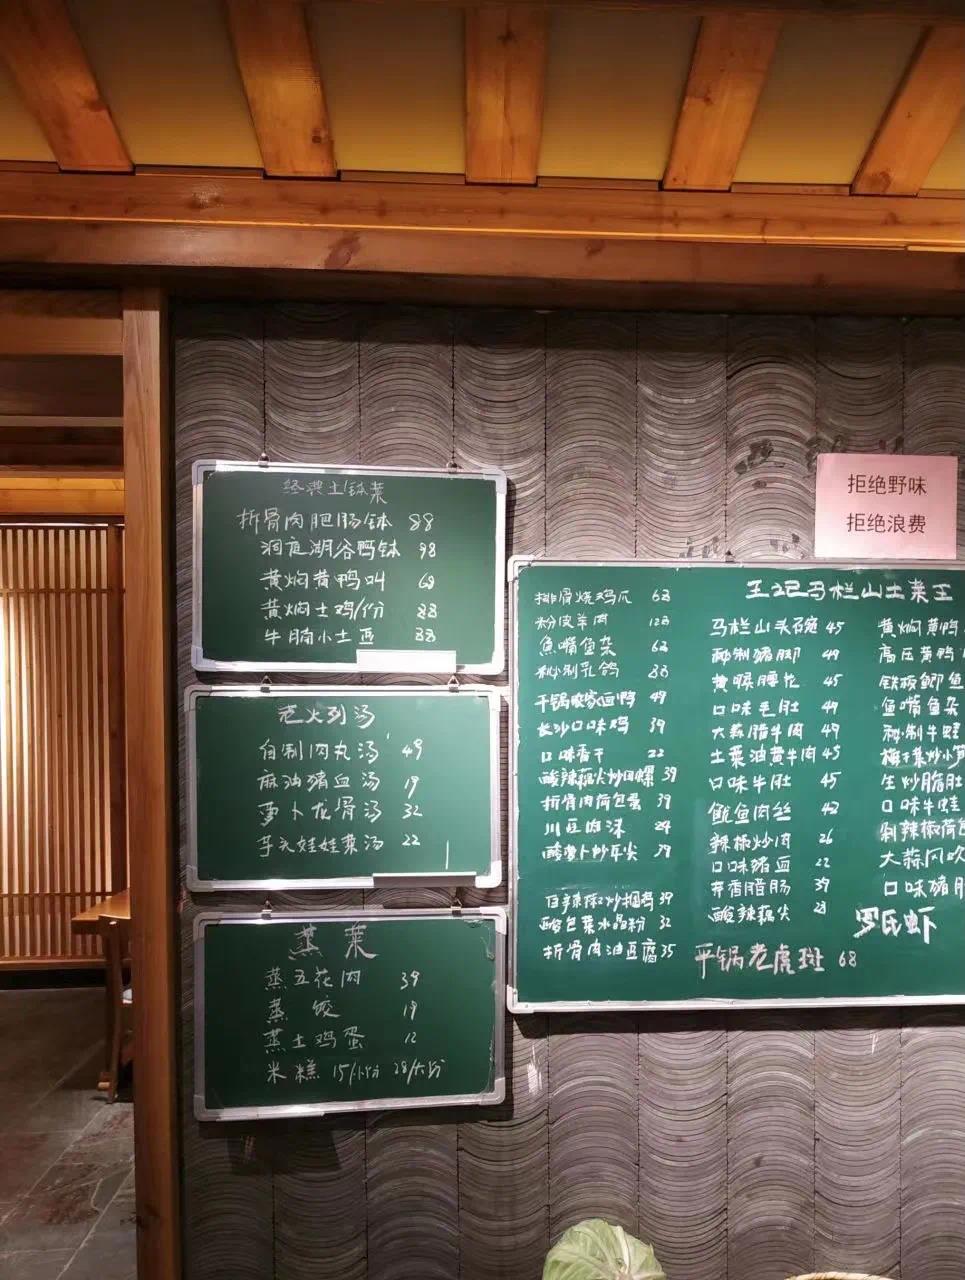 经典土钵菜
折骨肉肥肠钵 88
洞庭湖谷鸭钵 98
黄焖黄鸭叫 68
黄焖土鸡/份 88
牛腩小土豆
老火列汤
自制肉丸汤 49
麻油猪血汤 19
萝卜龙骨汤 32
芋头娃娃菜汤 22
蒸菜
蒸五花肉 39
蒸饺 19
蒸土鸡蛋 12
米糕 15/小份 28/大份
拒绝野味
拒绝浪费
王记马栏山土菜王
排骨烧鸡爪 68
粉皮羊肉 128
鱼嘴鱼杂 62
秘制乳鸽
干锅 鸭 49
长沙口味鸡 39
口味香干 22
酸辣藕尖炒田螺 39
折骨肉荷包蛋 39
川豆肉沫 29
酸萝卜炒耳尖 39
白辣椒炒 39
酸包菜水晶粉 32
折骨肉油豆腐 35
马栏山头碗 45
秘制猪脚 49
黄喉腰花 45
口味毛肚 49
大蒜腊牛肉 49
土菜油黄牛肉 45
口味牛肚 45
鱿鱼肉丝 42
辣椒炒肉 26
口味猪血 22
腊肠 39
酸辣藕尖 28
平锅老虎斑 68
黄焖黄鸭
高压黄鸭
铁板鲫鱼
鱼嘴鱼杂
秘制牛蛙
梅干菜炒小笋
生炒腊肚
口味牛蛙
剁辣椒荷包
大蒜风吹
口味猪
罗氏虾